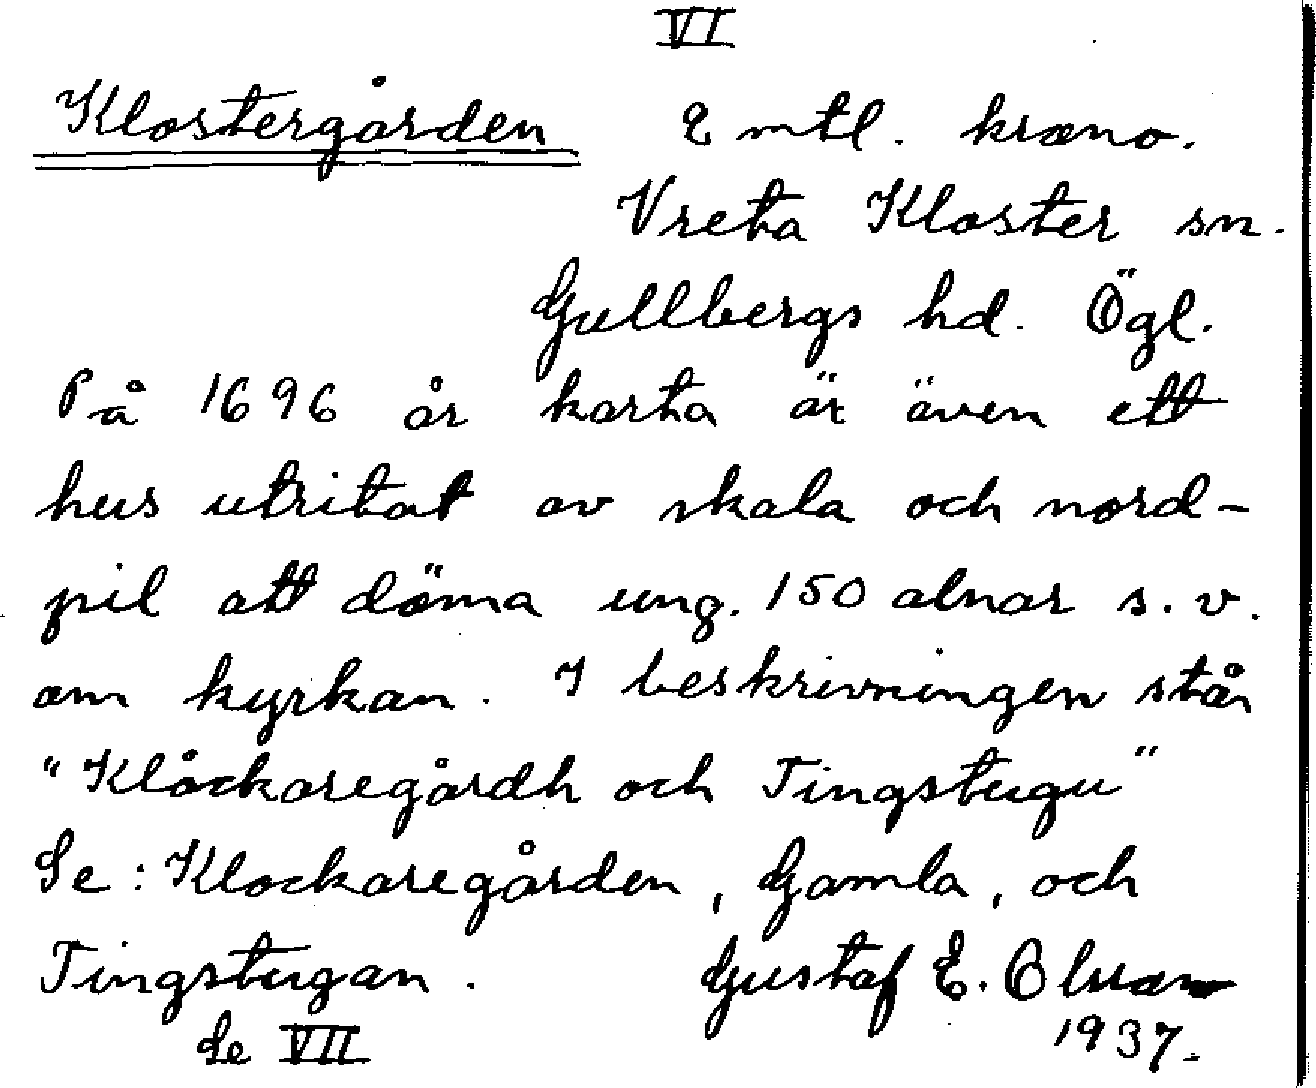 VI
Klostergården 2 mtl. krono.
Vreta Kloster sn.
Gullbergs hd. Ögl.
På 1696 år karta är även ett
hus utritat av skala och nord-
pil att döma ung. 150 alnar s.v.
om kyrkan. I beskrivningen står
"Klåckaregårdh och Tingstugu"
Se: Klockaregården, Gamla, och
Tingstugan. Gustaf E. Olsson
Se VII 1937.